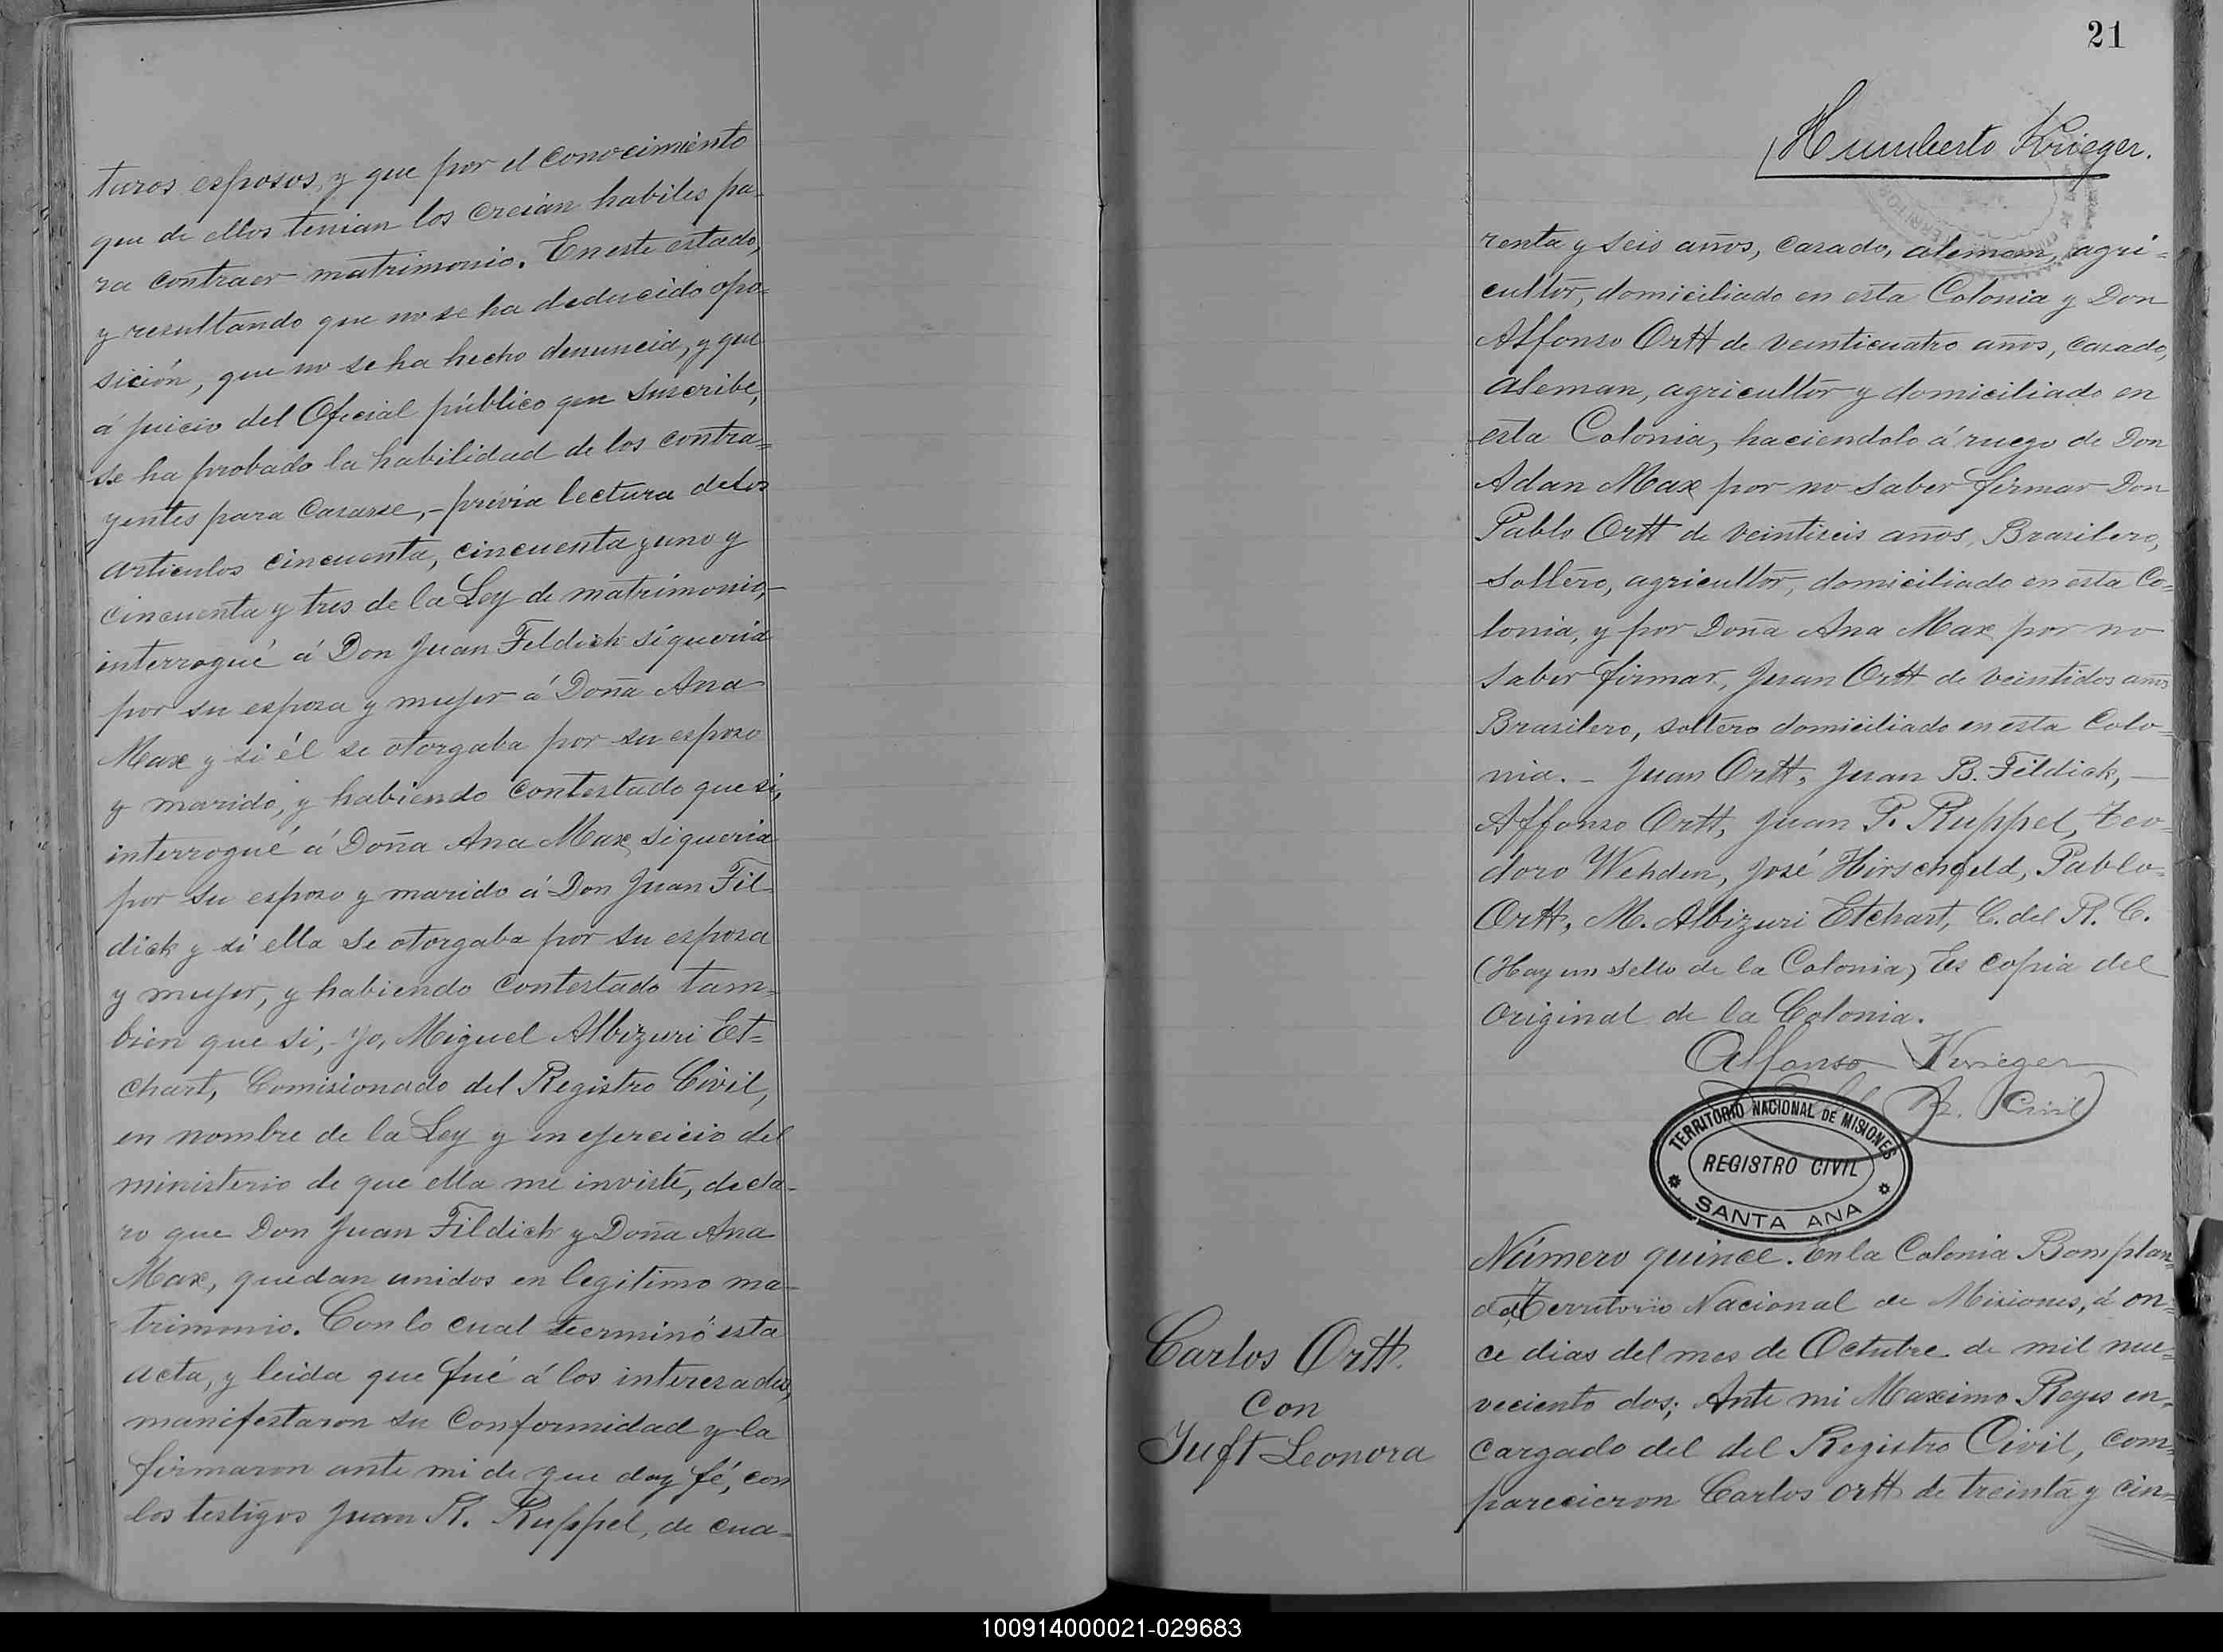 turos esposos, y que por el conocimiento
que de ellos tenian los creian habiles pa-
ra contraer matrimonio. En este estado,
y resultando que no se ha deducido opo-
sición, que no se ha hecho denuncia, y que
á juicio del Oficial público que suscribe,
se ha probado la habilidad de los contra=
yentes para casarse, - prévia lectura de los
articulos cincuenta, cincuenta y uno y
cincuenta y tres de la Ley de matrimonio,-
interrogué á Don Juan Feldick si queria
por su esposa y mujer á Doña Ana
Max y si él se otorgaba por su esposo
y marido, y habiendo contestado que si,
interrogué á Doña Ana Max, si queria
por su esposo y marido á Don Juan Fil-
dick y si ella se otorgaba por su esposa
y mujer, y habiendo contestado tam=
bien que si, - yo, Miguel Albizuri Et=
chart, Comisionado del Registro Civil,
en nombre de la Ley y en ejercicio del
ministerio de que ella me inviste, decla-
ro que Don Juan Fildick y Doña Ana
Max, quedan unidos en legitimo ma-
trimonio. Con lo cual terminó esta
acta, y leida que fué á los interezados,
manifestaron su conformidad y la
firmaron ante mi de que doy fé, con
los testigos Juan P. Ruppel, de cua=
21
Humberto Krieger.
renta y seis años, casado, aleman, agri=
cultor, domiciliado en esta Colonia y Don
Alfonso Ortt de veinticuatro años, casado,
aleman, agricultor y domiciliado en
esta Colonia, haciendolo á ruego de Don
Adan Max por no saber firmar Don
Pablo Ortt de veintiseis años, Brasilero,
soltero, agricultor, domiciliado en esta Co=
lonia, y por Doña Ana Max por no
saber firmar, Juan Ortt de veintidos años
Brasilero, soltero domiciliado en esta Colo=
nia. - Juan Ortt, Juan B. Fildick, -
Affonso Ortt, Juan P. Ruppel, Teo=
doro Wehden, José Hirschfeld, Pablo
Ortt, M. Albizuri Etchart, C. del R. C.
(Hay un sello de la Colonia) Es copia del
original de la Colonia.
Alfonso Krieger
R. Civil
TERRITORIO NACIONAL DE MISIONES
REGISTRO CIVIL
SANTA ANA
Número quince. En la Colonia Bomplan=
da, Territorio Nacional de Misiones, á on=
ce dias del mes de Octubre de mil nue=
veciento dos; Ante mi Maximo Reyes en=
cargado del del Registro Civil, com=
parecieron Carlos Ortt de treinta y cin=
Carlos Ortt.
Con
Juft Leonora
100914000021-029683